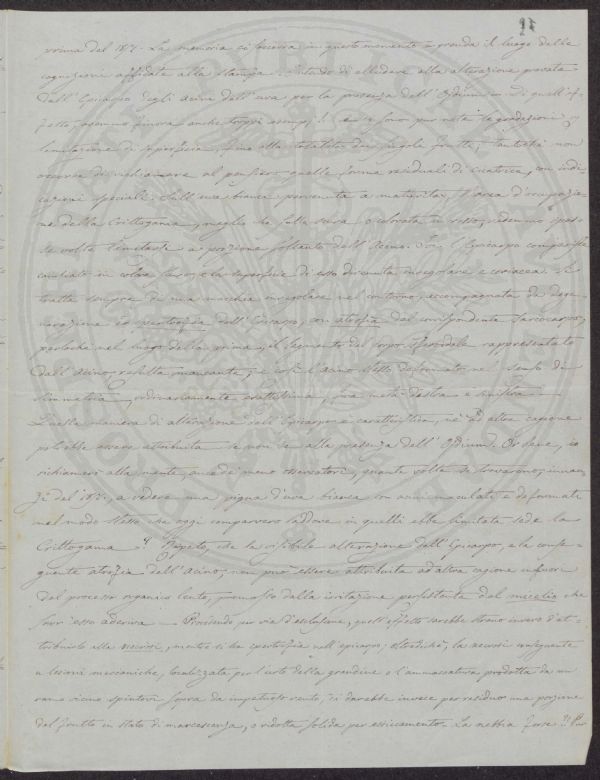 11
prima del 18 . La memoria ci soccorra in questo momento e prenda il luogo delle
cognizioni affidate alla Stampa. Intendo di alludere alla alterazione provata
dall'Epicarpo degli Acini dell'uva, per la presenza dell'Oïdium. di quell'ef-
fetto, ognuno finora anche troppi esempi, e son pur note le gradazioni,
limitazione di superficie, fino alla totalità dei singoli frutti; tantochè non
occorre di richiamare al pensiero quelle forme residuali di cicatrice, con indi-
cazioni speciali. Sull'uva bianca pervenuta a maturità, l'area d'occupazio-
ne della Crittogama, meglio che sulla nera o colorata in rosso, vedemmo spes-
se volte limitante a porzione soltanto dell'Acino. Ivi l'Epicarpo comparisce
cambiato in colore fusco, e la superficie di esso divenuta irregolare e coriacea. Si
tratta sempre di una macchia irregolare nel contorno, accompagnata da dege-
nerazione ed ipertrofia dell'Epicarpo, con atrofia del corrispondente Sarcocarpo,
perlochè nel luogo della prima, il Segmento del corpo sferoidale rappresentato
dall'Acino, resulta mancante, e così l'Acino stesso deformato nel senso di
simmetria, ordinariamente esattissima, fra metà destra e sinistra.
Quella maniera di alterazione dell'Epicarpo è caratteristica, nè ad altra cagione
potrebbe essere attribuita se non se alla presenza dell'Oïdium. Or bene, io
richiamerei alla mente, anche di meno osservatore, quante volte si trovarono, innan-
zi del 18 , a vedere una pigna d'uva bianca con acini maculati e deformati
nel modo stesso che oggi comparvero laddove in quelli ebbe limitata sede la
Crittogama? Ripeto, che la visibile alterazione dell'Epicarpo, e la conse-
guente atrofia dell'Acino, non può essere attribuita ad altra cagione infuori
del processo organico lento, promosso dalla irritazione persistente del micelio che
sovr'esso aderiva — Procedendo per via d'esclusione, quell'effetto sarebbe strano invero d'at-
tribuirlo alla necrosi, mentre si ha ipertrofia nell'epicarpo; oltredichè, la necrosi conseguente
a lesioni meccaniche, localizzata per l'urto della grandine o l'ammaccatura prodotta da un
ramo vicino spintovi sopra da impetuoso vento, ci darebbe invece per residuo una porzione
del frutto in stato di marcescenza, o ridotta solida per essiccamento. La nebbia forse?! Pur